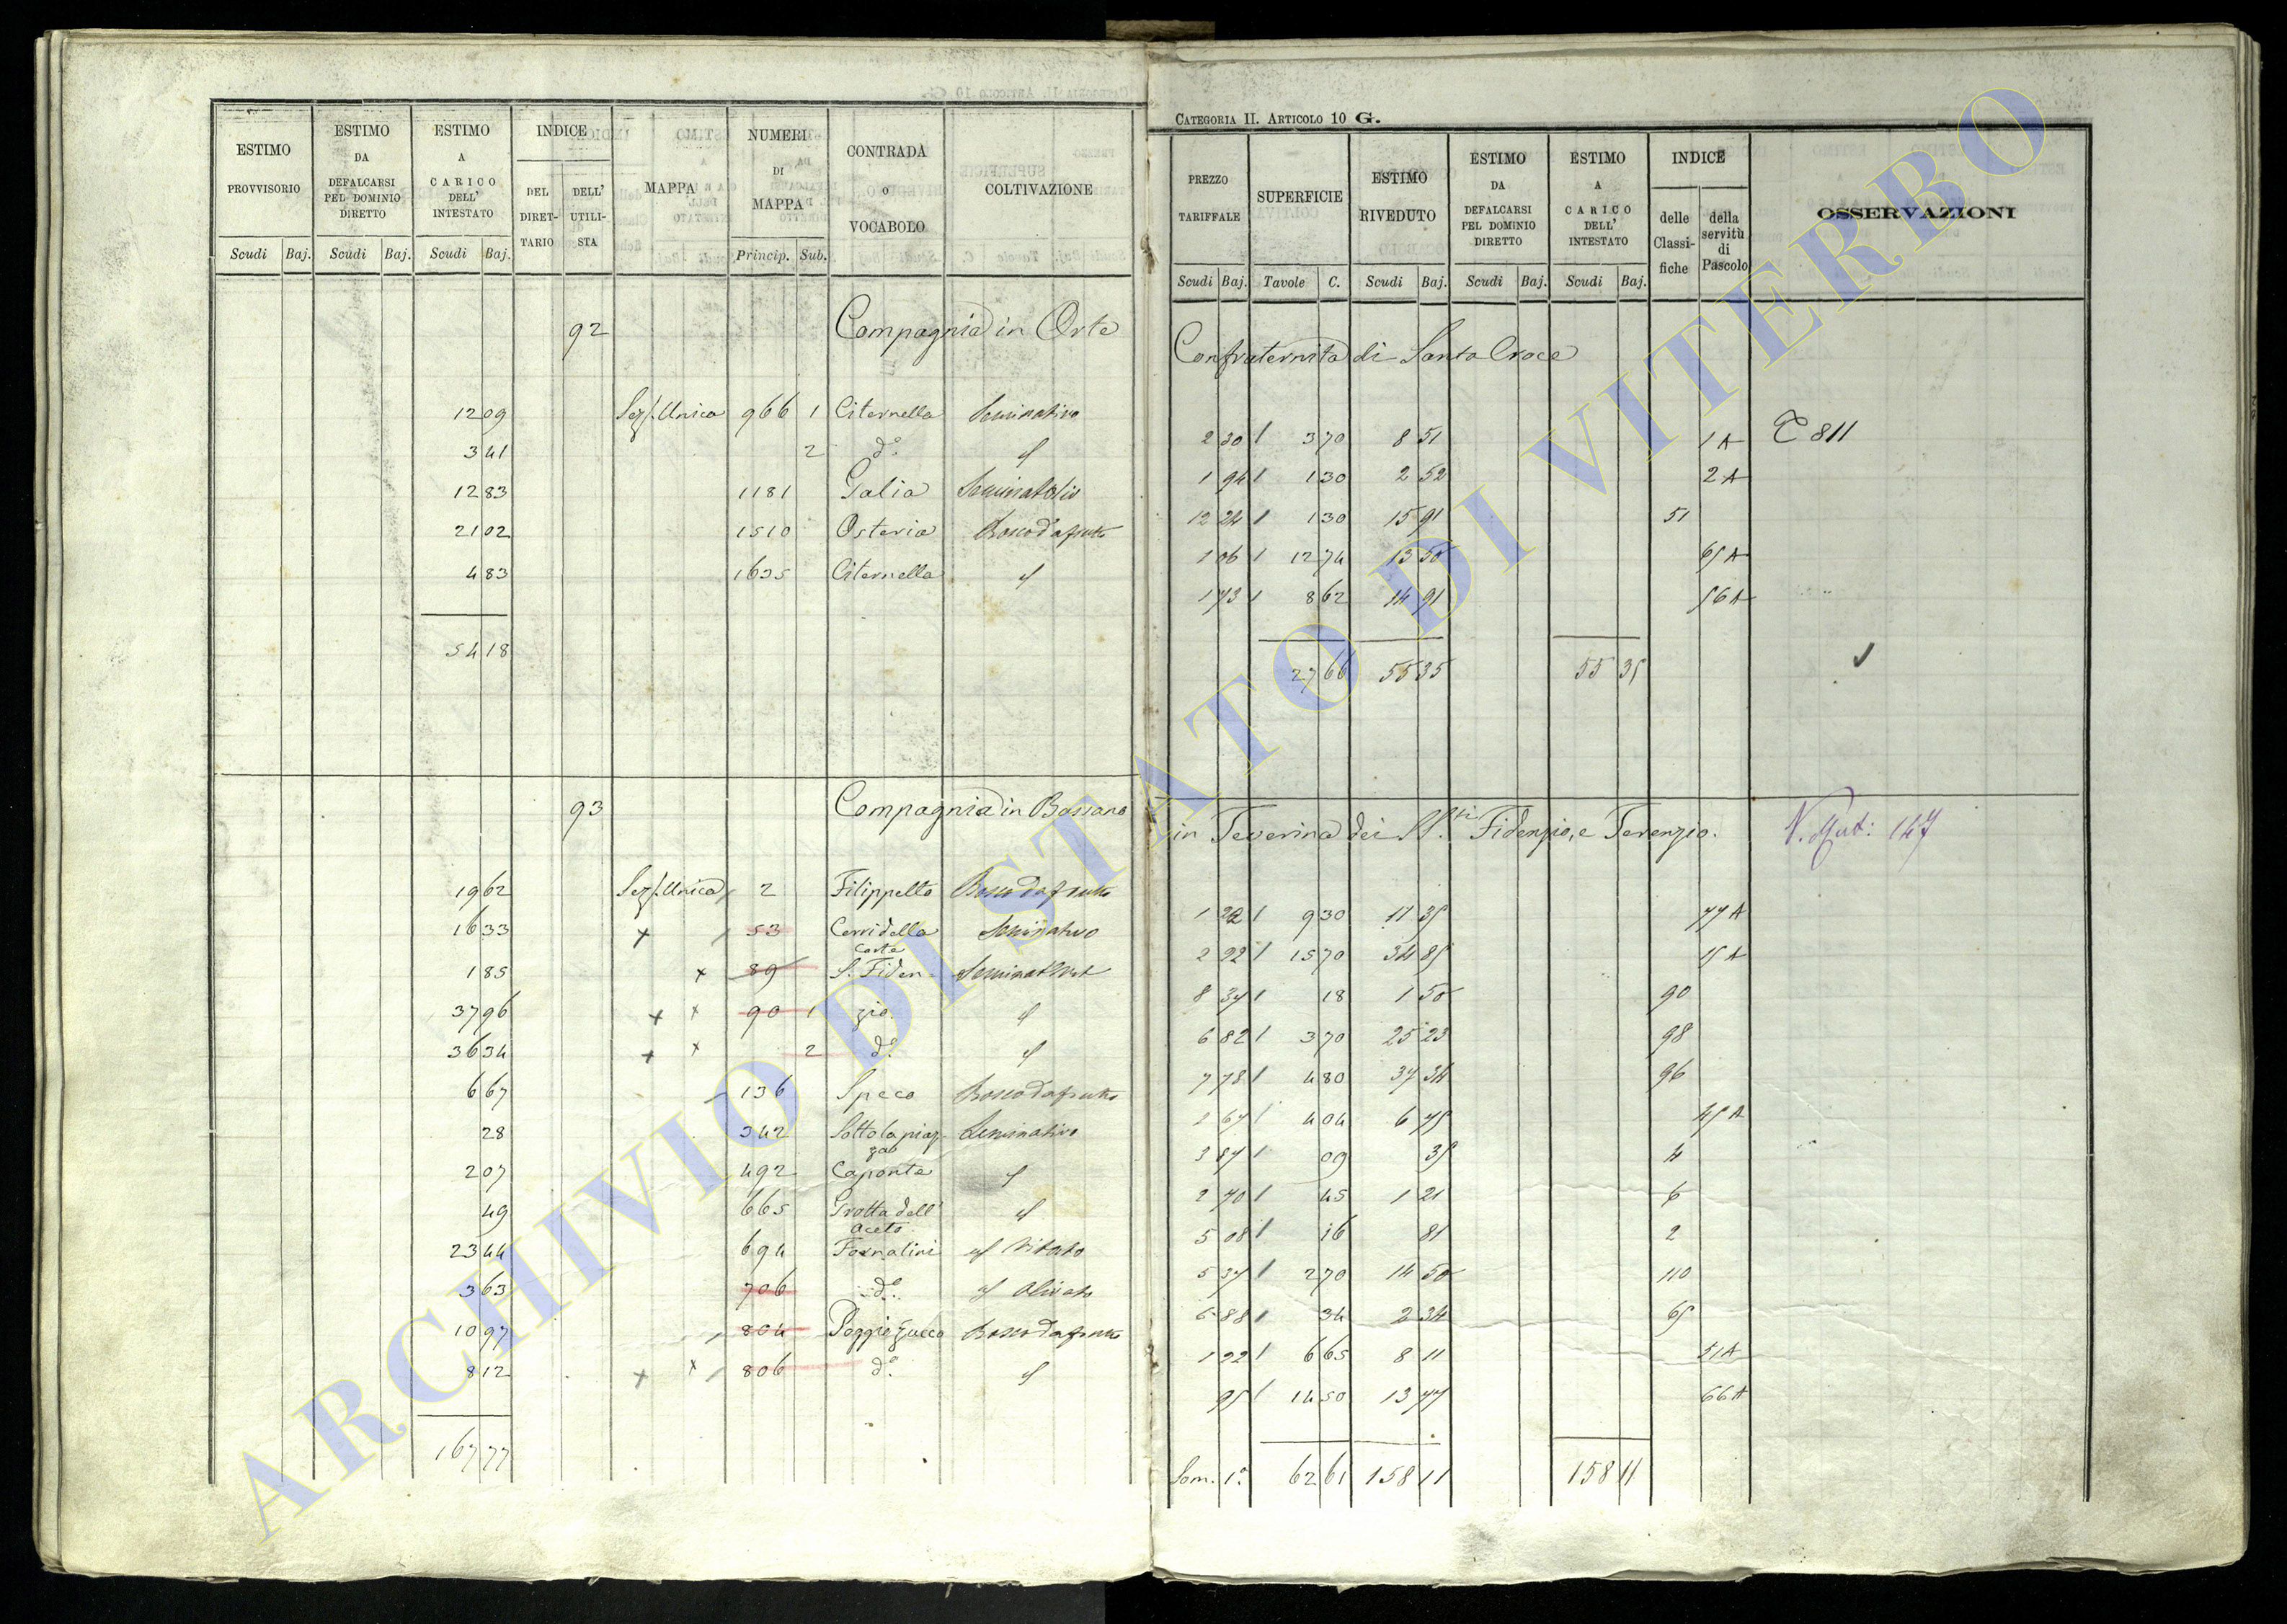 CATEGORIA II. ARTICOLO 10 G.
ESTIMO PROVVISORIO | ESTIMO DA DEFALCARSI PEL DOMINIO DIRETTO | ESTIMO A CARICO DELL' INTESTATO | INDICE | MAPPA | NUMERI DI MAPPA | CONTRADA o VOCABOLO | COLTIVAZIONE | PREZZO TARIFFALE | SUPERFICIE | ESTIMO RIVEDUTO | ESTIMO DA DEFALCARSI PEL DOMINIO DIRETTO | ESTIMO A CARICO DELL' INTESTATO | INDICE | OSSERVAZIONI
DEL DIRET-TARIO | DELL' UTILI-STA | delle Classi-fiche | della servitù di Pascolo
Scudi Baj. | Scudi Baj. | Scudi Baj. | Princip. Sub. | Scudi Baj. | Tavole C. | Scudi Baj. | Scudi Baj. | Scudi Baj.
92 Compagnia in Orte Confraternita di Santa Croce
12 09 Sez. Unica 966 1 Citernella Seminativo 2 30 / 3 70 8 51 1A 811
3 41 2 d.° 1 94 / 1 30 2 52 2A
12 83 1181 Galia Seminat Oliv 12 24 / 1 30 15 91 51
21 02 1510 Osteria Bosco da frutto 1 06 / 12 74 13 50 65A
4 83 1635 Citernella 1 73 / 8 62 14 91 56A
54 18 27 66 55 35 55 35
93 Compagnia in Bassano in Teverina dei SS.ti Fidenzio, e Terenzio. N. Mut: 147
19 62 Sez. Unica 2 Filippetto Bosco da frutto 1 22 / 9 30 11 35 77A
16 33 53 Cerridella Seminativo 2 22 / 15 70 34 85 15A
1 85 89 Corte S. Fiden- Seminat Vit 8 34 / 18 1 50 90
37 96 90 1 zio 6 82 / 3 70 25 23 98
36 34 2 d.° 7 78 / 4 80 37 34 96
6 67 136 Speco Bosco da frutto 1 67 / 4 04 6 75 45A
28 342 Sotto la piaz- Seminativo 3 87 / 09 35 4
zao
2 07 492 Caponte 2 70 / 45 1 21 6
49 665 Grotta dell' Aceto 5 08 / 16 81 2
23 44 694 Fornalini Vitato 5 37 / 2 70 14 50 110
3 63 706 d.° Olivato 6 88 / 34 2 34 65
10 97 804 Poggio Zucco Bosco da frutto 1 22 / 6 65 8 11 51A
8 12 806 d.° 95 / 14 50 13 77 66A
167 77 Som. 1.a 62 61 158 11 158 11
ARCHIVIO DI STATO DI VITERBO